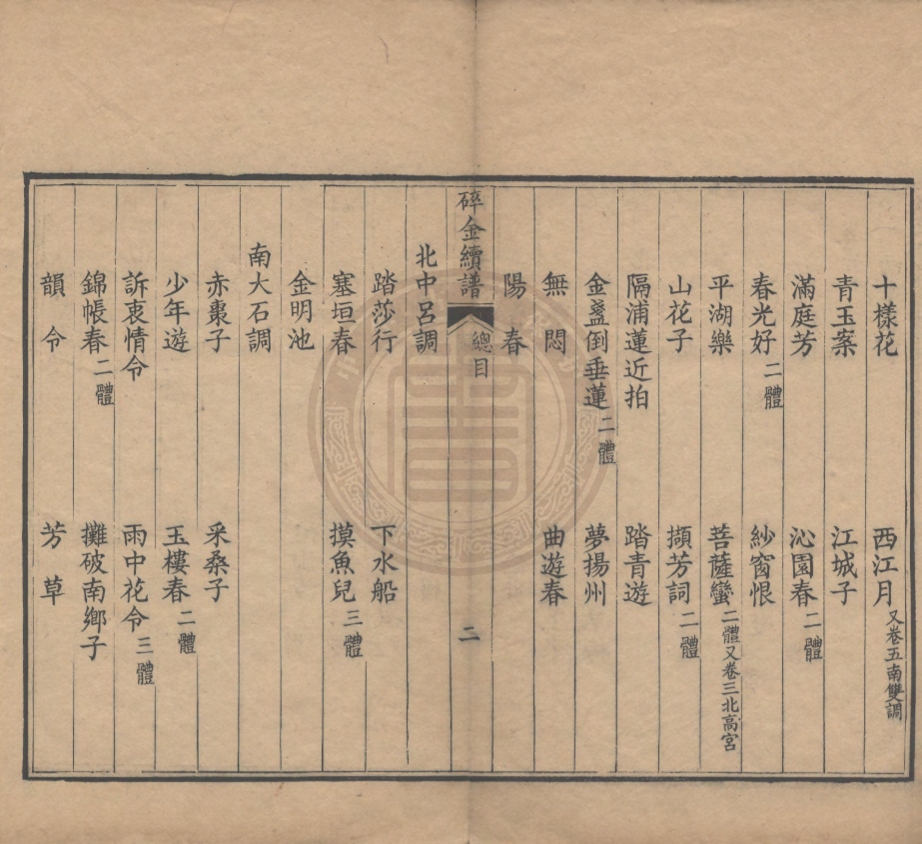 十樣花　西江月又卷五南雙調
青玉案　江城子
滿庭芳　沁園春二體
春光好二體　紗窗恨
平湖樂　菩薩蠻二體又卷三北高宮
山花子　擷芳詞二體
隔浦蓮近拍　踏青遊
金盞倒垂蓮二體　夢揚州
無悶　曲遊春
陽春
碎金續譜　總目　二
北中呂調
踏莎行　下水船
塞垣春　摸魚兒三體
金明池
南大石調
赤棗子　采桑子
少年遊　玉樓春二體
訴衷情令　雨中花令三體
錦帳春二體　攤破南鄉子
韻令　芳草